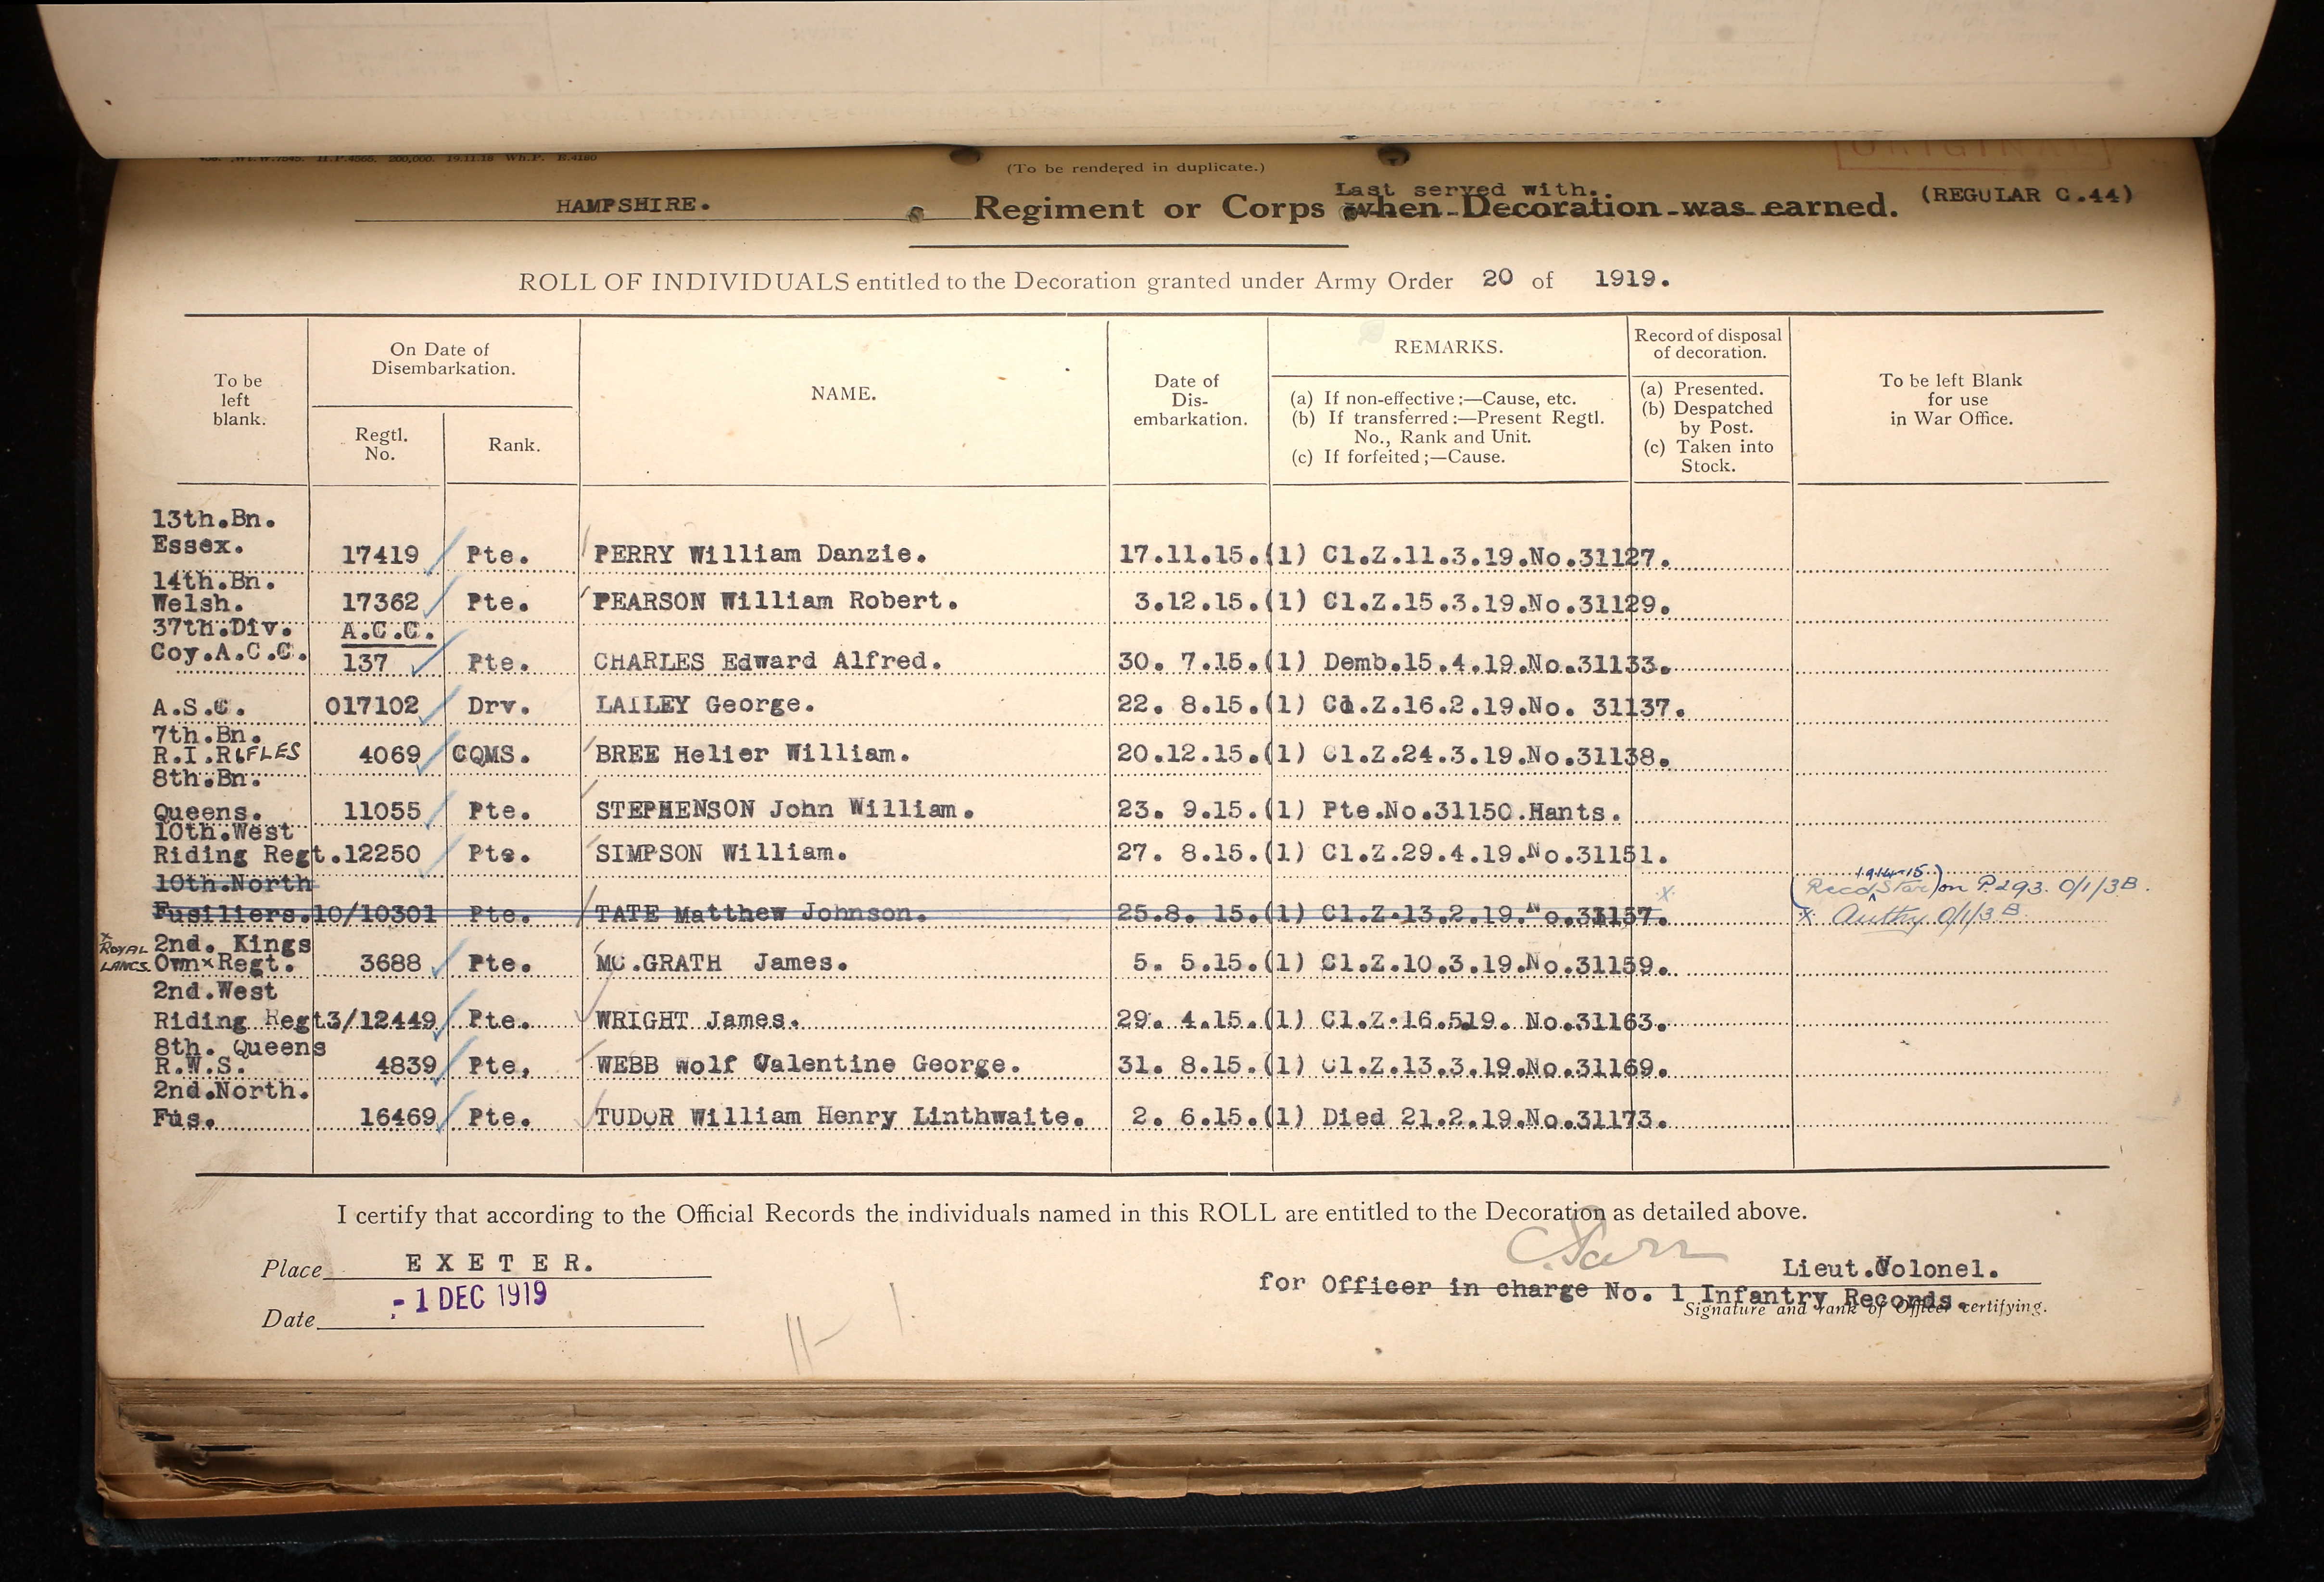 (To be rendered in duplicate.)
ORIGINAL
HAMPSHIRE. Regiment or Corps when Decoration was earned. (REGULAR C.44)
Last served with.
ROLL OF INDIVIDUALS entitled to the Decoration granted under Army Order 20 of 1919.
To be left blank.
On Date of Disembarkation.
Regtl. No.
Rank.
NAME.
Date of Dis-embarkation.
REMARKS.
(a) If non-effective:—Cause, etc.
(b) If transferred:—Present Regtl. No., Rank and Unit.
(c) If forfeited;—Cause.
Record of disposal of decoration.
(a) Presented.
(b) Despatched by Post.
(c) Taken into Stock.
To be left Blank for use in War Office.
13th.Bn.
Essex. 17419 Pte. PERRY William Danzie. 17.11.15.(1) Cl.Z.11.3.19.No.31127.
14th.Bn.
Welsh. 17362 Pte. PEARSON William Robert. 3.12.15.(1) Cl.Z.15.3.19.No.31129.
37th.Div. A.C.C.
Coy.A.C.C. 137 Pte. CHARLES Edward Alfred. 30. 7.15.(1) Demb.15.4.19.No.31133.
A.S.C. 017102 Drv. LAILEY George. 22. 8.15.(1) Cl.Z.16.2.19.No. 31137.
7th.Bn.
R.I.RIFLES 4069 CQMS. BREE Helier William. 20.12.15.(1) Cl.Z.24.3.19.No.31138.
8th.Bn.
Queens. 11055 Pte. STEPHENSON John William. 23. 9.15.(1) Pte.No.31150.Hants.
10th.West
Riding Regt.12250 Pte. SIMPSON William. 27. 8.15.(1) Cl.Z.29.4.19.No.31151.
10th.North
Fusiliers.10/10301 Pte. TATE Matthew Johnson. 25.8. 15.(1) Cl.Z.13.2.19.No.31157. x
(Recd 1914-15 Star) on P.293. O/1/3B.
x Authy O/1/3B
x ROYAL LANCS.
2nd. Kings
Own x Regt. 3688 Pte. MC.GRATH James. 5. 5.15.(1) Cl.Z.10.3.19.No.31159.
2nd.West
Riding Regt3/12449 Pte. WRIGHT James. 29. 4.15.(1) Cl.Z.16.519. No.31163.
8th. Queens
R.W.S. 4839 Pte, WEBB Wolf Valentine George. 31. 8.15.(1) Cl.Z.13.3.19.No.31169.
2nd.North.
Fus. 16469 Pte. TUDOR William Henry Linthwaite. 2. 6.15.(1) Died 21.2.19.No.31173.
I certify that according to the Official Records the individuals named in this ROLL are entitled to the Decoration as detailed above.
Place EXETER.
Date - 1 DEC 1919
Lieut.Colonel.
for Officer in charge No. 1 Infantry Records.
Signature and rank of Officer certifying.